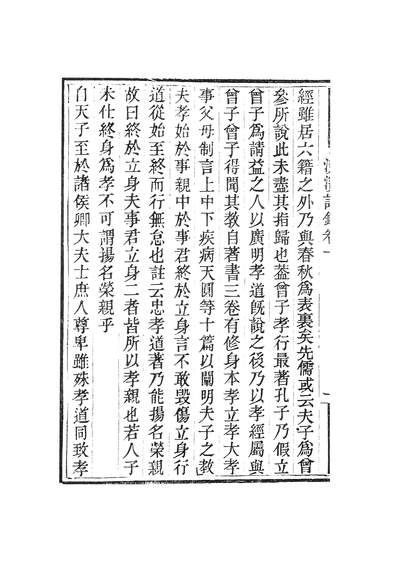 經雖居六籍之外乃與春秋爲表裏矣先儒或云夫子爲曾
參所說此未盡其指歸也葢曾子孝行最著孔子乃假立
曾子爲請益之人以廣明孝道旣說之後乃以孝經屬與
曾子曾子得聞其敎自著書三卷有修身本孝立孝大孝
事父母制言上中下疾病天圓等十篇以闡明夫子之敎
夫孝始於事親中於事君終於立身言不敢毀傷立身行
道從始至終而行無怠也註云忠孝道著乃能揚名榮親
故曰終於立身夫事君立身二者皆所以孝親也若人子
未仕終身爲孝不可謂揚名榮親乎
自天子至於諸侯卿大夫士庶人尊卑雖殊孝道同致孝